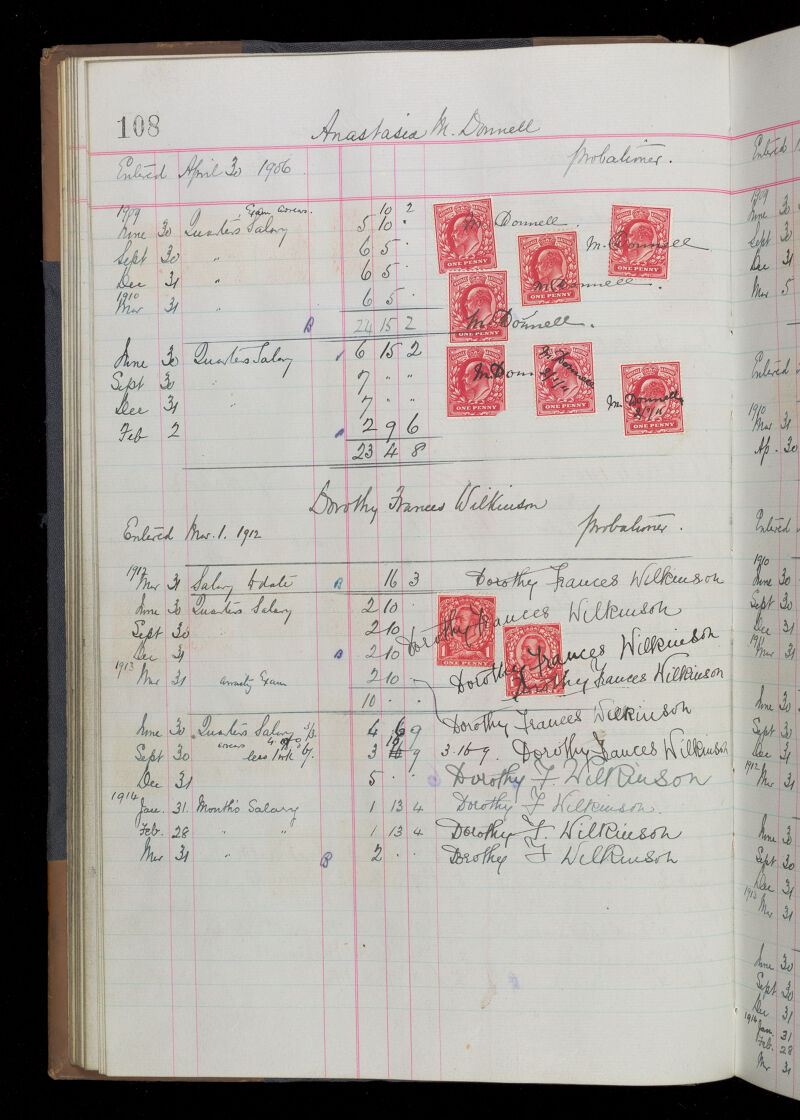 108
Anastasia M. Donnell
Entered April 30 1906 Probationer.
1909 Exam arrears. 10 2
June 30 Quarter's Salary 5 10 · M. Donnell.
Sept 30 " 6 5 · M. Donnell
Dec 31 " 6 5 · M. Donnell.
1910
Mar 31 " 6 5 ·
B 24 15 2 M. Donnell.
June 30 Quarters Salary 6 15 2 M. Donnell M. Donnell
Sept 30 " 7 " "
Dec 31 " 7 " " M. Donnell
Feb 2 2 9 6
23 4 8
ONE PENNY
ONE PENNY
ONE PENNY
ONE PENNY
ONE PENNY
ONE PENNY
ONE PENNY
Dorothy Frances Wilkinson
Entered Mar. 1. 1912 Probationer.
1912
Mar 31 Salary to date B 16 3 Dorothy Frances Wilkinson
June 30 Quarters Salary 2 10 · Dorothy Frances Wilkinson
Sept 30 2 10 Dorothy Frances Wilkinson
Dec 31 B 2 10 Dorothy Frances Wilkinson
1913
Mar 31 Exam 2 10 ·
10 · ·
ONE PENNY
Dorothy Frances Wilkinson
June 30 Quarters Salary 4 6 9
Sept 30 arrears less 3 16 9 3.16.9. Dorothy Frances Wilkinson
Dec 31 5 · · Dorothy F. Wilkinson
1914
Jan. 31. Month's Salary 1 13 4 Dorothy F Wilkinson.
Feb. 28 " " 1 13 4 Dorothy F. Wilkinson
Mar 31 " B 2 · · Dorothy F Wilkinson
Entered
1909
June 30
Sept 30
Dec 31
Mar 5
Entered
1910
Mar 31
Ap. 30
Entered
1910
June 30
Sept 30
Dec 31
1911
Mar 31
June 30
Sept 30
Dec 31
1912
Mar 31
June 30
Sept 30
Dec 31
1913
Mar 31
June 30
Sept 30
Dec 31
1914
Jan. 31
Feb. 28
Mar 31